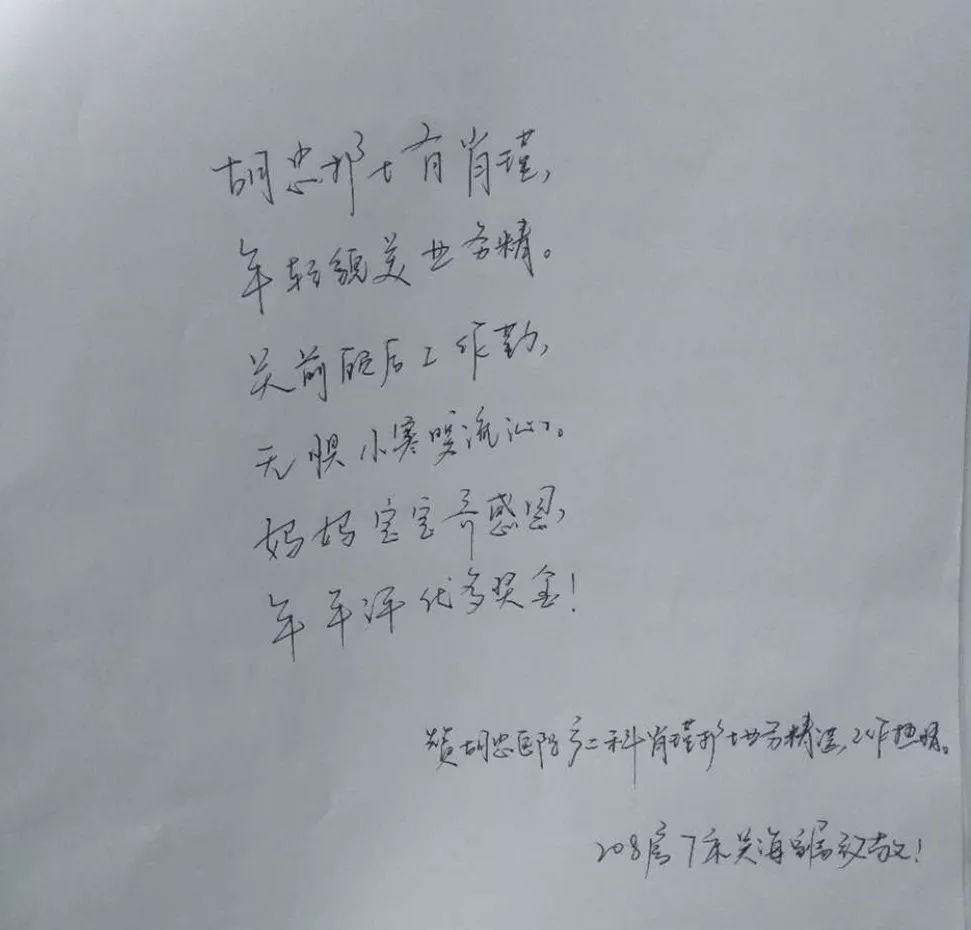 胡忠护士有肖瑾,
年轻貌美业务精。
关前顾后工作勤,
无惧小寒暖流沁。
妈妈宝宝齐感恩,
年年评优多奖金!
赞胡忠医院产二科肖瑾护士业务精湛,工作热情。
208房7床吴海 敬!